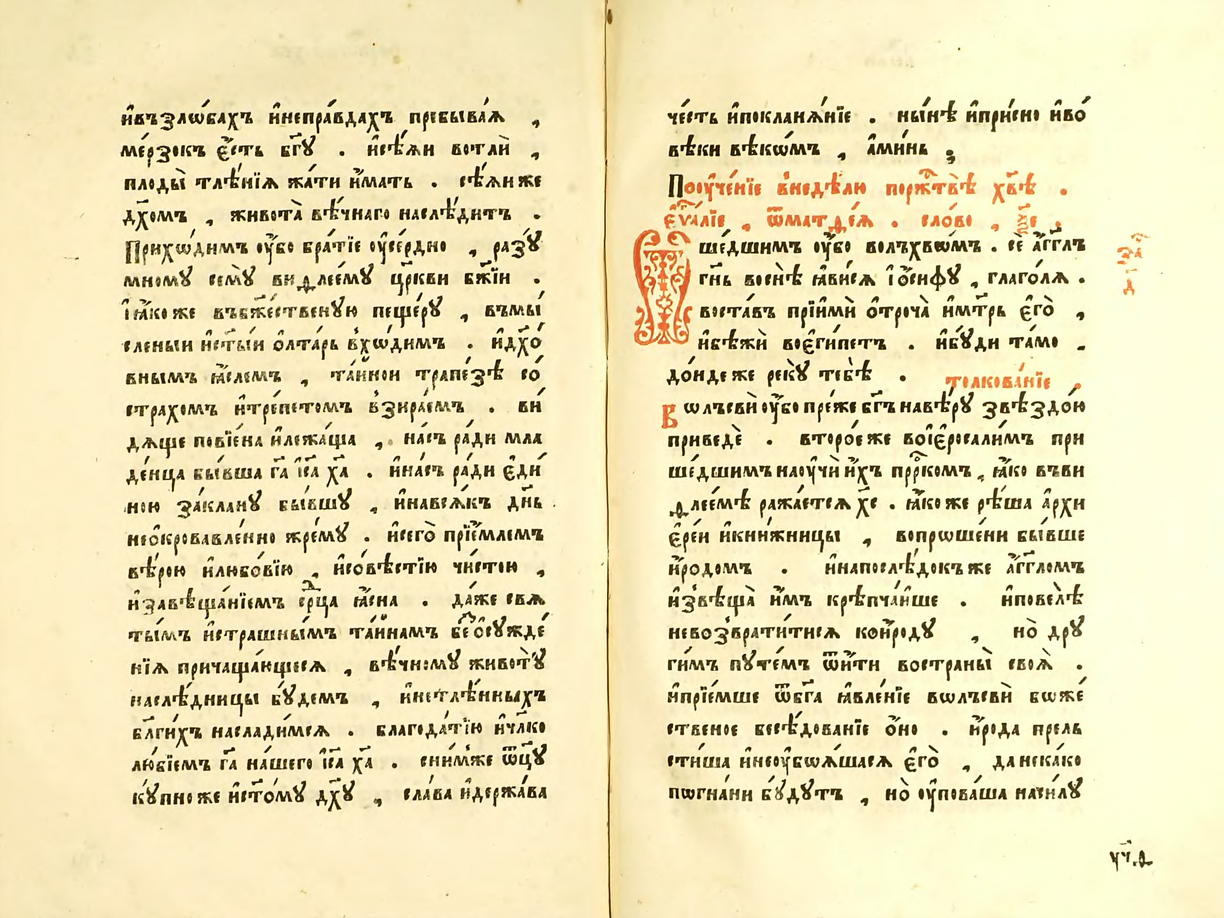 и҆въѕло́бахъ и҆непра́вдахъ пребыва́ѧ ,
ме́рзокъ є҆́сть бг҃ꙋ . и҆сѣ́ѧи вотлѝ ,
плоды̀ тлѣ́нїѧ жа́ти и҆́мать . сѣ́ѧи же
дх҃омъ , живота̀ вѣ́чнаго наслѣ́дитъ .
Прихѡ́димъ ᲂу҆̀бо бра́тїе ᲂу҆се́рдно , разꙋ́
мномꙋ семꙋ̀ виѳлее́мꙋ цр҃кви бж҃їи .
І҆ ꙗ҆́коже въбж҃ественꙋю пеще́рꙋ , въмы́
сленыи и҆ст҃ы́и ѻ҆лта́рь вхѡ́димъ . и҆дх҃о́
внымъ ꙗ҆́слемъ , та́йнои трапе́зѣ со́
страхомъ и҆тре́петомъ взира́емъ . ви́
дѧще пови́ена и҆лежа́ща , на́съ ра́ди мла
де́нца бы́вша га҃ і҆са҃ ха҃ . и҆на́съ ра́ди є҆ди́
ною закла́нꙋ бы́вшꙋ , и҆нава́сѧкъ дн҃ь
неѻ҆кровавле́нно жре́мꙋ . и҆сего̀ прїе́млемъ
вѣ́рою и҆любо́вїю , и҆со́вѣстїю чи́стою ,
и҆завѣща́нїемъ се́рца ꙗ҆́сна . да́же свѧ
ты́мъ и҆стра́шнымъ та́йнамъ бесꙋжде́
нїѧ причаща́ющесѧ , вѣ́чномꙋ животꙋ̀
наслѣ́дницы бꙋ́демъ , и҆нетлѣ́нныхъ
бл҃ги́хъ наслади́мсѧ . благода́тїю и҆чл҃ко
лю́бїемъ га҃ на́шего і҆са҃ ха҃ . сни́мже ѿц҃ꙋ̀
кꙋ́пноже и҆ст҃о́мꙋ дх҃ꙋ , сла́ва и҆держа́ва
че́сть и҆поклана́нїе . ны́нѣ и҆при́сно и҆во́
вѣ́ки вѣкѡ́мъ , а҆ми́нь ;
Поᲂуче́нїе внедѣ́лю порж҃твѣ̀ хв҃ѣ .
є҆ѵа҃лїе , ѿматѳе́ѧ . сло́во ,
Шє́дшимъ ᲂу҆̀бо волъхвѡ́мъ . сѐ а҆́гг҃лъ
гн҃ь воснѣ̀ ꙗ҆ви́сѧ і҆ѡ́сифꙋ , глаго́лѧ .
воста́въ прїимѝ ѻ҆троча̀ и҆мт҃рь є҆гѡ̀ ,
и҆бѣжѝ воє҆ги́петъ . и҆бꙋ́ди та́мо .
до́ндеже рекꙋ̀ тебѣ̀ . толкова́нїе ,
Вѡлъсви́ ᲂу҆̀бо пре́же бг҃ъ навѣ́рꙋ звѣздо́ю
приведѐ . второ́е же воі҆єросали́мъ при
ше́дшимъ наᲂучѝ и҆́хъ прⷪ҇рокомъ , ꙗ҆́ко въви
ѳлее́мѣ ража́етсѧ хс҃ . ꙗ҆́коже рѣ́ша а҆рхи
є҆ре́и и҆кни́жницы , вопрѡше́ни бы́вше
и҆́родомъ . и҆напослѣ́докъ же а҆́гг҃ломъ
и҆звѣща̀ и҆́мъ крѣпча́йше . и҆повелѣ̀
невозврати́тисѧ коѝродꙋ , но̀ дрꙋ
ги́мъ пꙋте́мъ ѿи҆тѝ востраны̀ своѧ̀ .
и҆прїе́мше ѿбг҃а ꙗ҆вле́нїе вѡлъсви̂ бѡже́
ственое бесѣ́дованїе о҆́но . и҆́рода прель
сти́ша и҆неᲂу҆боѧ́шасѧ є҆гѡ̀ , данека́ко
пѡгна́ни бꙋ́дꙋтъ , но̀ ᲂу҆пова́ша наси́лꙋ